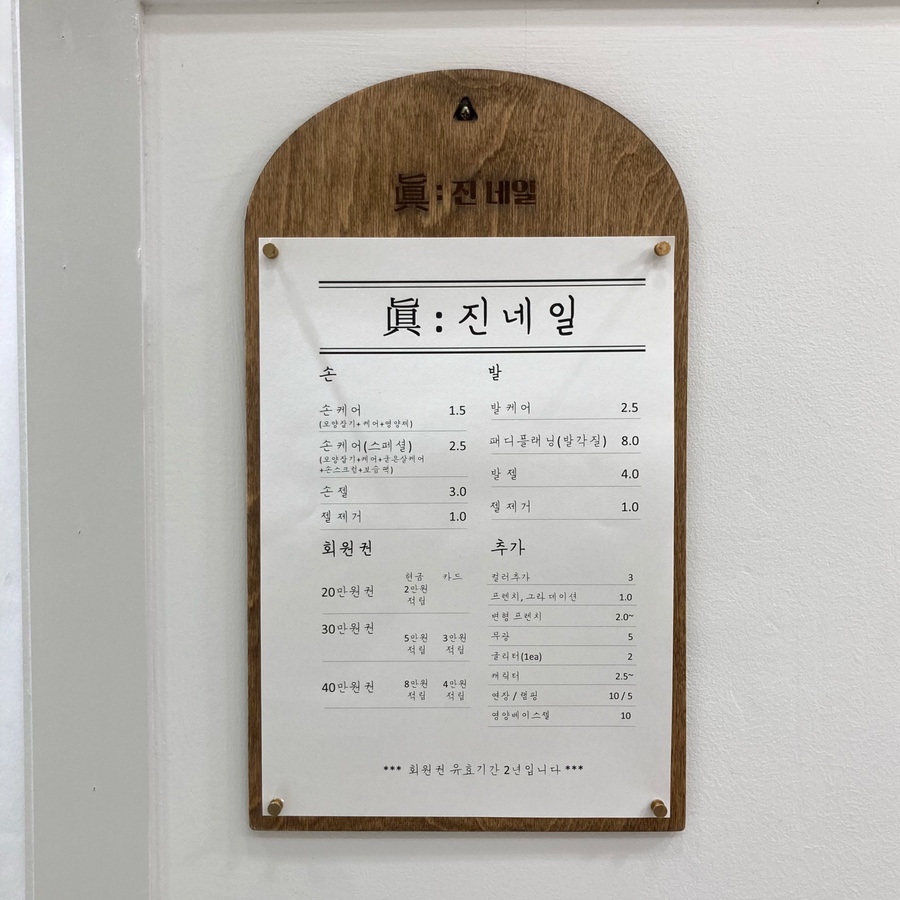 眞:진 네일
眞:진네일
손
손케어 1.5
(모양잡기+케어+영양제)
손케어(스페셜) 2.5
(모양잡기+케어+굳은살케어
+손스크럽+보습팩)
손젤 3.0
젤제거 1.0
발
발케어 2.5
패디플래닝(발각질) 8.0
발젤 4.0
젤제거 1.0
회원권
현금 카드
20만원권 2만원
적립
30만원권
5만원 3만원
적립 적립
40만원권 8만원 4만원
적립 적립
추가
컬러추가 3
프렌치, 그라데이션 1.0
변형프렌치 2.0~
무광 5
글리터(1ea) 2
캐릭터 2.5~
연장/랩핑 10 / 5
영양베이스젤 10
*** 회원권 유효기간 2년입니다 ***